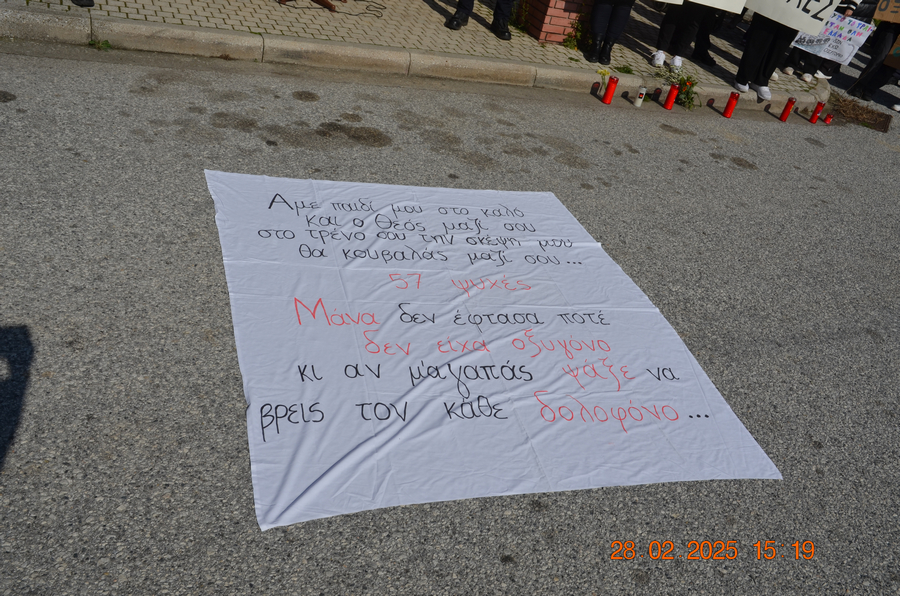 Αμε παιδί μου στο καλό
και ο Θεός μαζί σου
στο τρένο σου την σκέψη μου
θα κουβαλάς μαζί σου...
57 ψυχές
Μάνα δεν έφτασα ποτέ
δεν είχα οξυγόνο
κι αν μ'αγαπάς ψάξε να
βρεις τον κάθε δολοφόνο...
28.02.2025 15:19